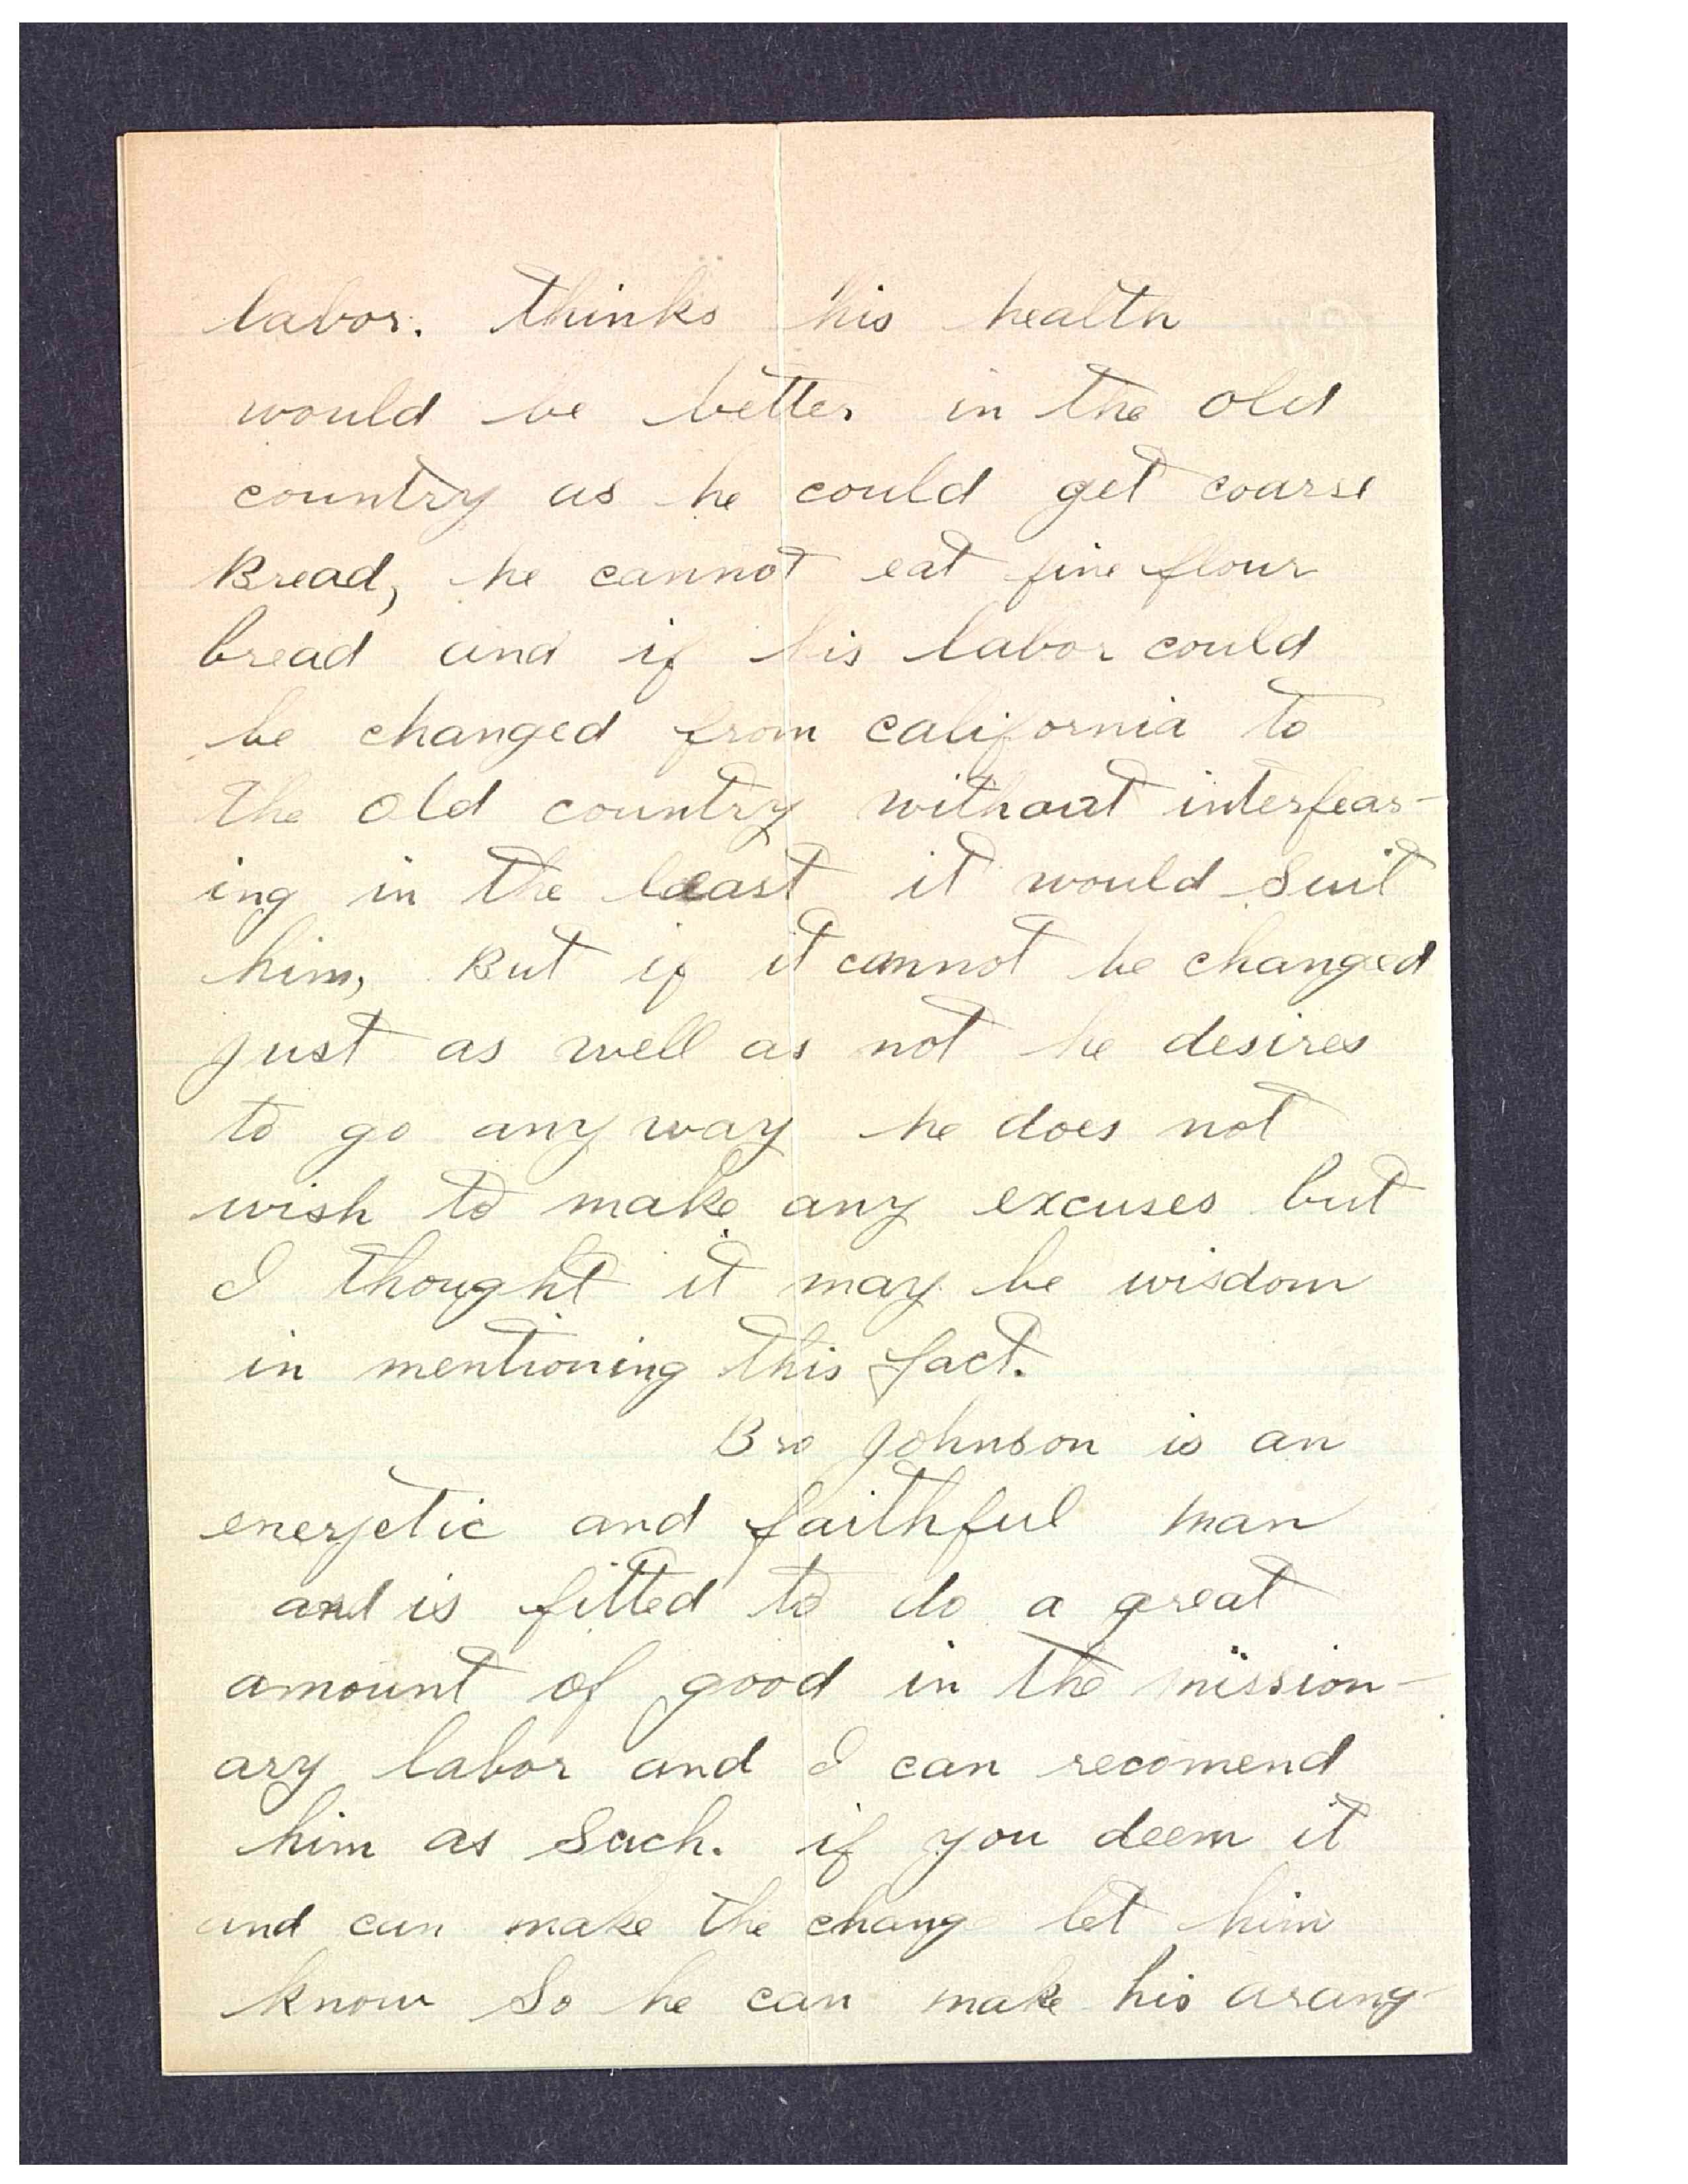 labor. thinks his health
would be better in the old
country as he could get coarse
Bread, he cannot eat fine flour
bread and if his labor could
be changed from california to
the old country without interfear-
ing in the least it would Suit
him, But if it cannot be changed
just as well as not he desires
to go any way he does not
wish to make any excuses but
I thought it may be wisdom
in mentioning this fact.
Bro Johnson is an
energetic and faithful man
and is fitted to do a great
amount of good in the mission-
ary labor and I can recomend
him as Such. if you deem it
and can make the chang let him
know So he can make his arang-